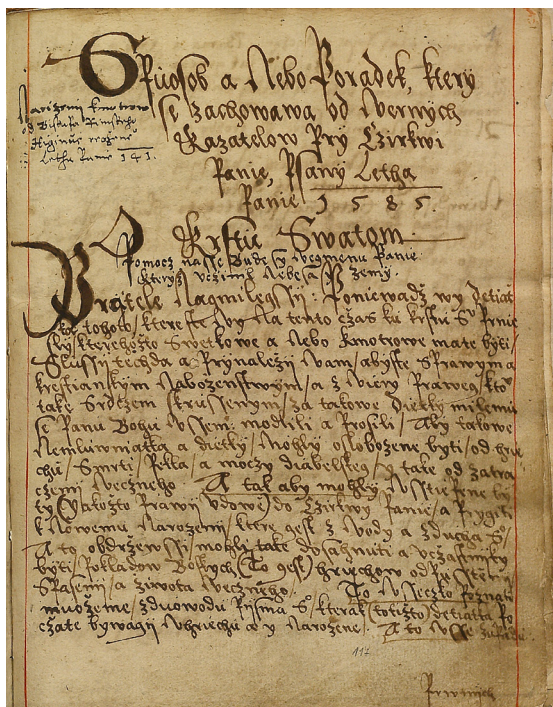 Spuosob a Nebo Poradek, ktery
se zachowawa od Wernych
Kazatelow Pry Czirkwi
Panie, Psany Letha
Panie 1 5 8 5.
Narizeni kmotrow
od Biskupa Rimskeho
Higinus
Letha Panie 1 4 1.
O Krstu Swatom
Pomocz nasse Bude wegmenu Panie
kterys uczinil Nebe a Zemy.
Bratele Nagmilegssii: Poniewadz wy dietiat
ko tohoto / ktere ste wy Na tento czas ku krstu S° Prnie
sly / kterehozto Swetkowe a Nebo kmotrowe mate byti
Slussii techda a Prynalezii Wam / abyste s Prawym a
krestianskym Nabozenstwym / a z Wiery Praweg / kto
take Srdczem skrussenym / za takowe dietky milemu
se Panu Bohu Wsem: modlili a Prosili / Aby takowe
Nemluwniatka a dietky / Mohly oslobozene byti / od hrie
chu / Smrti / Pekla / a moczy diabelskeg / y take od zatra
czeni Weczneho. A tak aby mohly
ty (Yakozto Prawy udowe) do Czirkwy Panie / a Prygiti
k Nowemu Narozeni / ktere gest z Wody a z ducha S°/
A to obdrzewssi / mohli take dosahnuti a uczastniky
byti / Pokladow Bozkych, (To gest) hriechow odpustenii
Spaseni / a ziwota Wecznebo. To Wseczko Poznati
muozeme / z duowodu Pisma S°, kterak (totizto) dietatka Po
czate bywagii Whriechu a y Narozene. A to Wsse
117
Prwnich